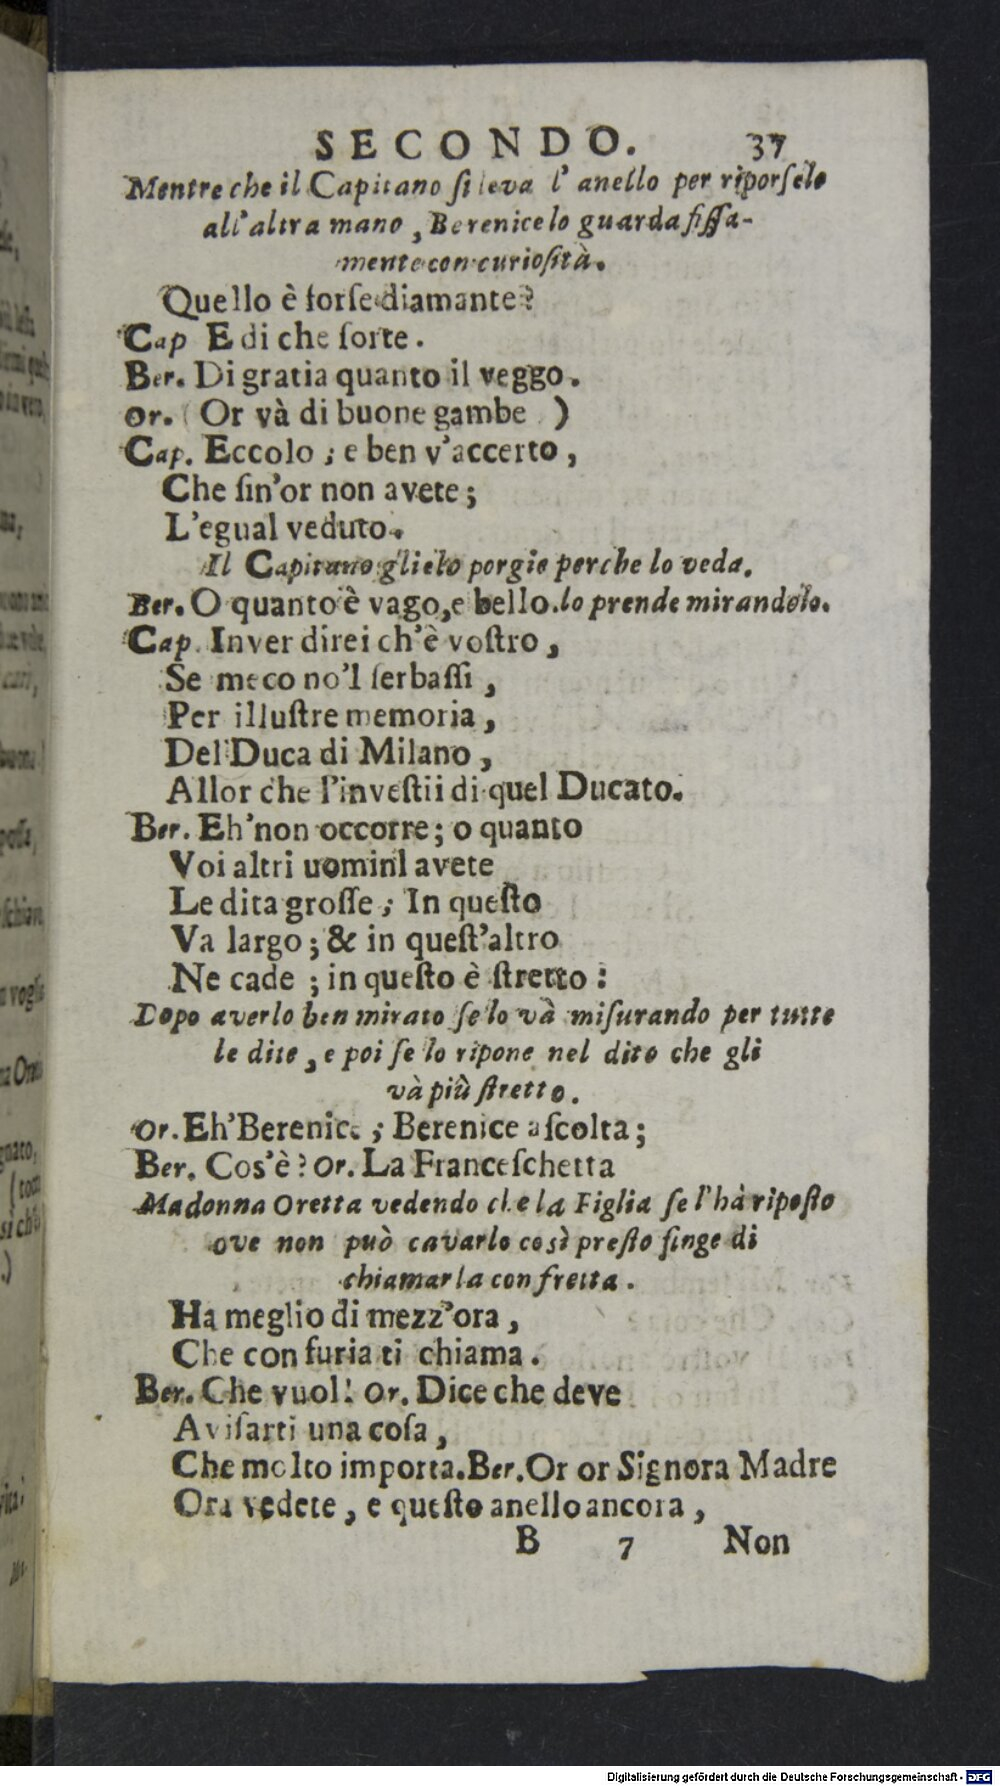 SECONDO. 37
Mentre che il Capitano ſi leva l' anello per riporſelo
all'altra mano, Berenice lo guarda fiſſa-
mente con curioſità.
Quello è forſe diamante?
Cap E di che ſorte.
Ber. Di gratia quanto il veggo.
Or. (Or và di buone gambe )
Cap. Eccolo; e ben v'accerto,
Che ſin'or non avete;
L'egual veduto.
Il Capitano glielo porgie perche lo veda.
Ber. O quanto è vago, e bello. lo prende mirandolo.
Cap. In ver direi ch'è voſtro,
Se meco no'l ſerbaſſi,
Per illuſtre memoria,
Del Duca di Milano,
Allor che l'inveſtii di quel Ducato.
Ber. Eh'non occorre; o quanto
Voi altri uominl avete
Le dita groſſe; In queſto
Va largo; & in queſt'altro
Ne cade; in queſto è ſtretto:
Dopo averlo ben mirato ſe lo và miſurando per tutte
le dite, e poi ſe lo ripone nel dito che gli
và più ſtretto.
Or. Eh'Berenice; Berenice aſcolta;
Ber. Cos'è? Or. La Franceſchetta
Madonna Oretta vedendo che la Figlia ſe l'hà ripoſto
ove non può cavarlo così preſto finge di
chiamarla con fretta.
Ha meglio di mezz'ora,
Che con furia ti chiama.
Ber. Che vuol! Or. Dice che deve
Aviſarti una coſa,
Che molto importa. Ber. Or or Signora Madre
Ora vedete, e queſto anello ancora,
B 7 Non
Digitalisierung gefördert durch die Deutsche Forschungsgemeinschaft - DFG